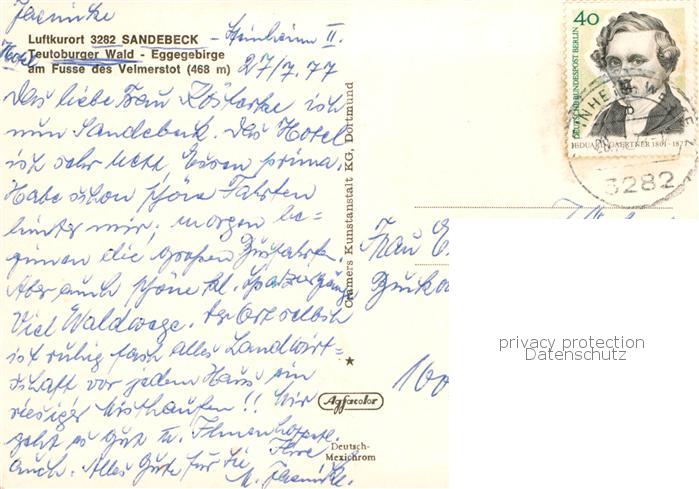 Jaenicke
Luftkurort 3282 SANDEBECK - Steinheim II.
Hotel Teutoburger Wald - Eggegebirge
am Fusse des Velmerstot (468 m) 27/7. 77
Das liebe Frau ist
nun Sandebeck. Das Hotel
ist sehr nett, Essen prima,
Habe schon schöne Fahrten
hinter mir, morgen be=
ginnen die großen
Aber auch schöne kl. Spaziergänge
Viel Waldwege. Der Ort selbst
ist ruhig fast alles Landwirt=
schaft vor jedem Haus ein
riesiger Misthaufen!! Mir
geht es gut u. Ihnen hoffentl.
auch. Alles Gute für Sie Ihre
M. Jaenicke.
Cramers Kunstanstalt KG, Dortmund
Agfacolor
Deutsch-
Mexichrom
40
DEUTSCHE BUNDESPOST BERLIN
EDUARD GAERTNER 1801-1877
3282
Frau
100
privacy protection
Datenschutz